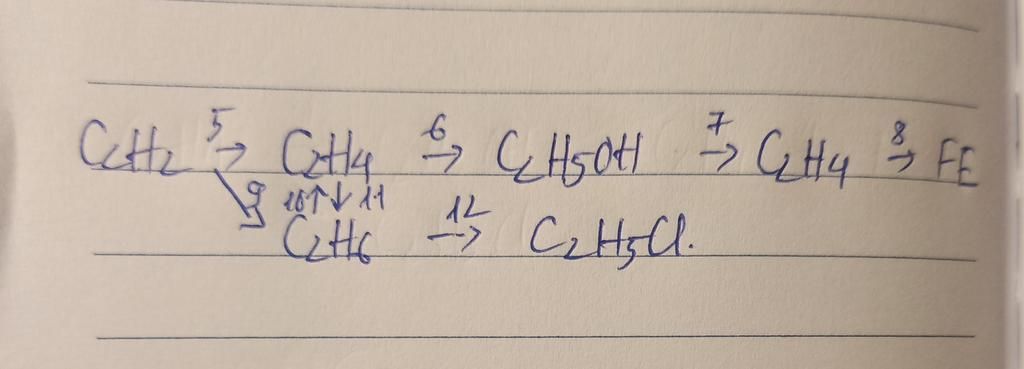 C2H2 5→ C2H4 6→ C2H5OH 7→ C2H4 8→ FE
9↘ 10↑↓11
C2H6 12→ C2H5Cl.